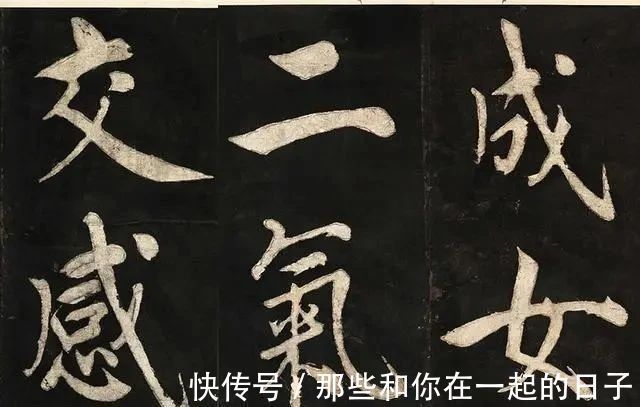 成女
二氣
交感
快传号/那些和你在一起的日子